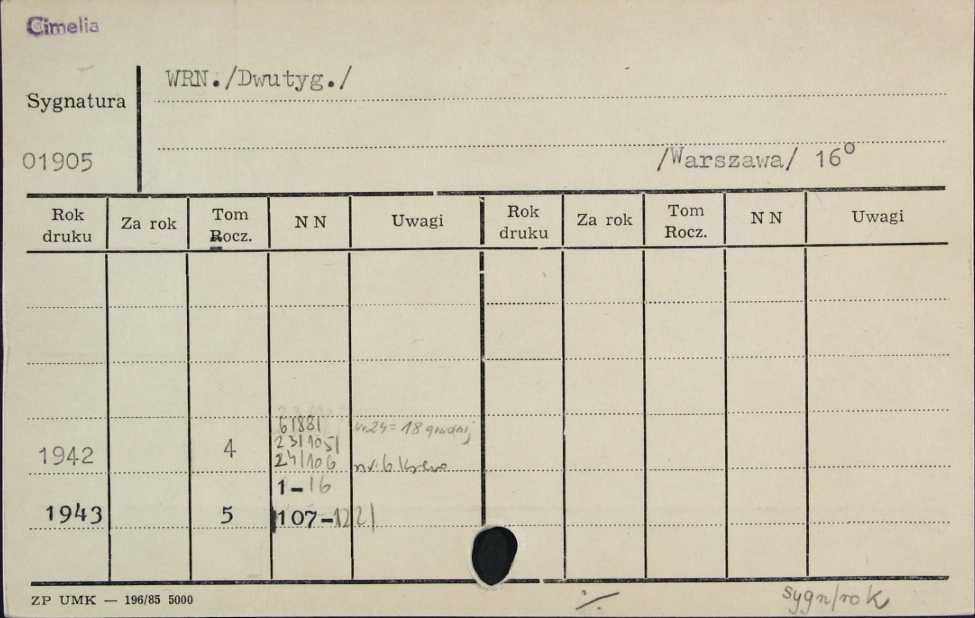 Cimelia
WRN./Dwutyg./
Sygnatura
01905
/Warszawa/ 16°
Rok druku Za rok Tom Rocz. N N Uwagi Rok druku Za rok Tom Rocz. N N Uwagi
6/88/ nr 24 = 18 grudnij
23/105/
1942 4 24/106 nr. 6
1-16
1943 5 107-122/
ZP UMK — 196/85 5000
./. sygn/rok